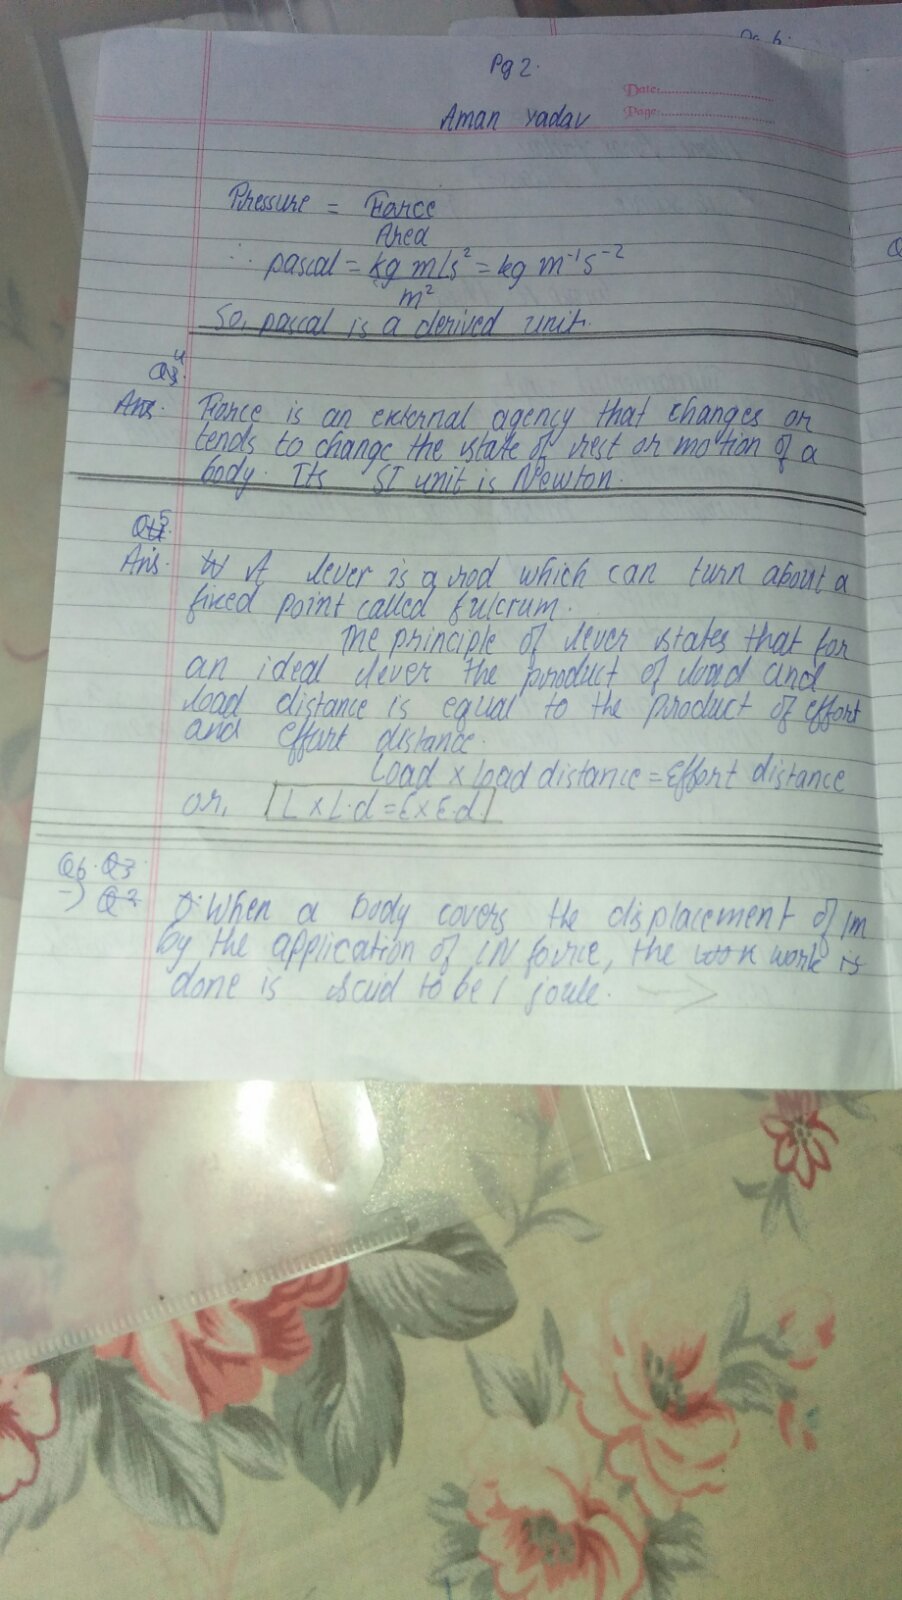 Pg 6.
Pg 2.
Date:
Page:
Aman Yadav
Pressure = Force
Area
∴ pascal = kg m/s² = kg m⁻¹s⁻²
m²
So, pascal is a derived unit.
Q4.
Ans. Force is an external agency that changes or
tends to change the state of rest or motion of a
body. Its SI unit is Newton.
Q5
Ans. A lever is a rod which can turn about a
fixed point called fulcrum.
The principle of lever states that for
an ideal lever the product of load and
load distance is equal to the product of effort
and effort distance.
Load x load distance = Effort distance
or, L x L.d = E x E.d
Q6. Q3
-) Q2 When a body covers the displacement of 1m
by the application of 1N force, the work is
done is said to be 1 joule. →